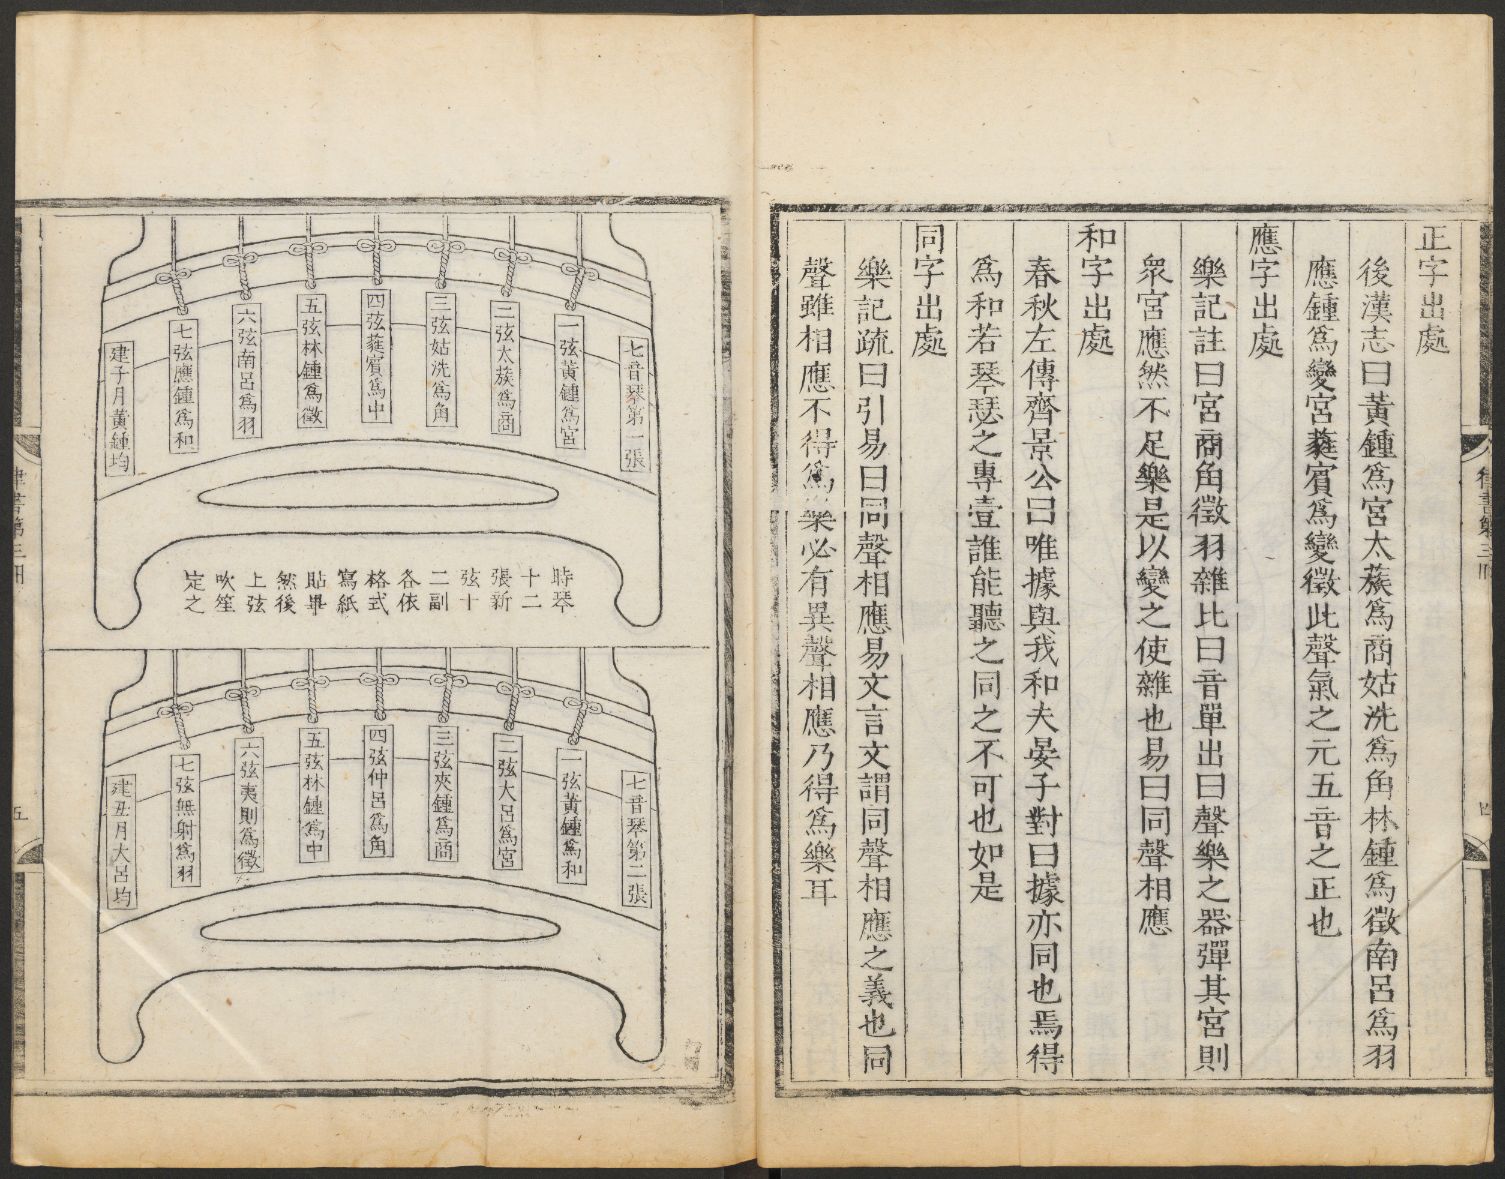 正字出處
後漢志曰黃鍾爲宮太蔟爲商姑洗爲角林鍾爲徵南呂爲羽
應鍾爲變宮蕤賓爲變徵此聲氣之元五音之正也
應字出處
樂記註曰宮商角徵羽雜比曰音單出曰聲樂之器彈其宮則
衆宮應然不足樂是以變之使雜也易曰同聲相應
和字出處
春秋左傳齊景公曰唯據與我和夫晏子對曰據亦同也焉得
爲和若琴瑟之專壹誰能聽之同之不可也如是
同字出處
樂記疏曰引易曰同聲相應易文言文謂同聲相應之義也同
聲雖相應不得爲樂必有異聲相應乃得爲樂耳
四
七音琴第一張
一弦黃鍾爲宮
二弦太蔟爲商
三弦姑洗爲角
四弦蕤賓爲中
五弦林鍾爲徵
六弦南呂爲羽
七弦應鍾爲和
建子月黃鍾均
時琴
十二
張新
弦十
二副
各依
格式
寫紙
貼畢
然後
上弦
吹笙
定之
七音琴第二張
一弦黃鍾爲和
二弦大呂爲宮
三弦夾鍾爲商
四弦仲呂爲角
五弦林鍾爲中
六弦夷則爲徵
七弦無射爲羽
建丑月大呂均
律書第三冊
五